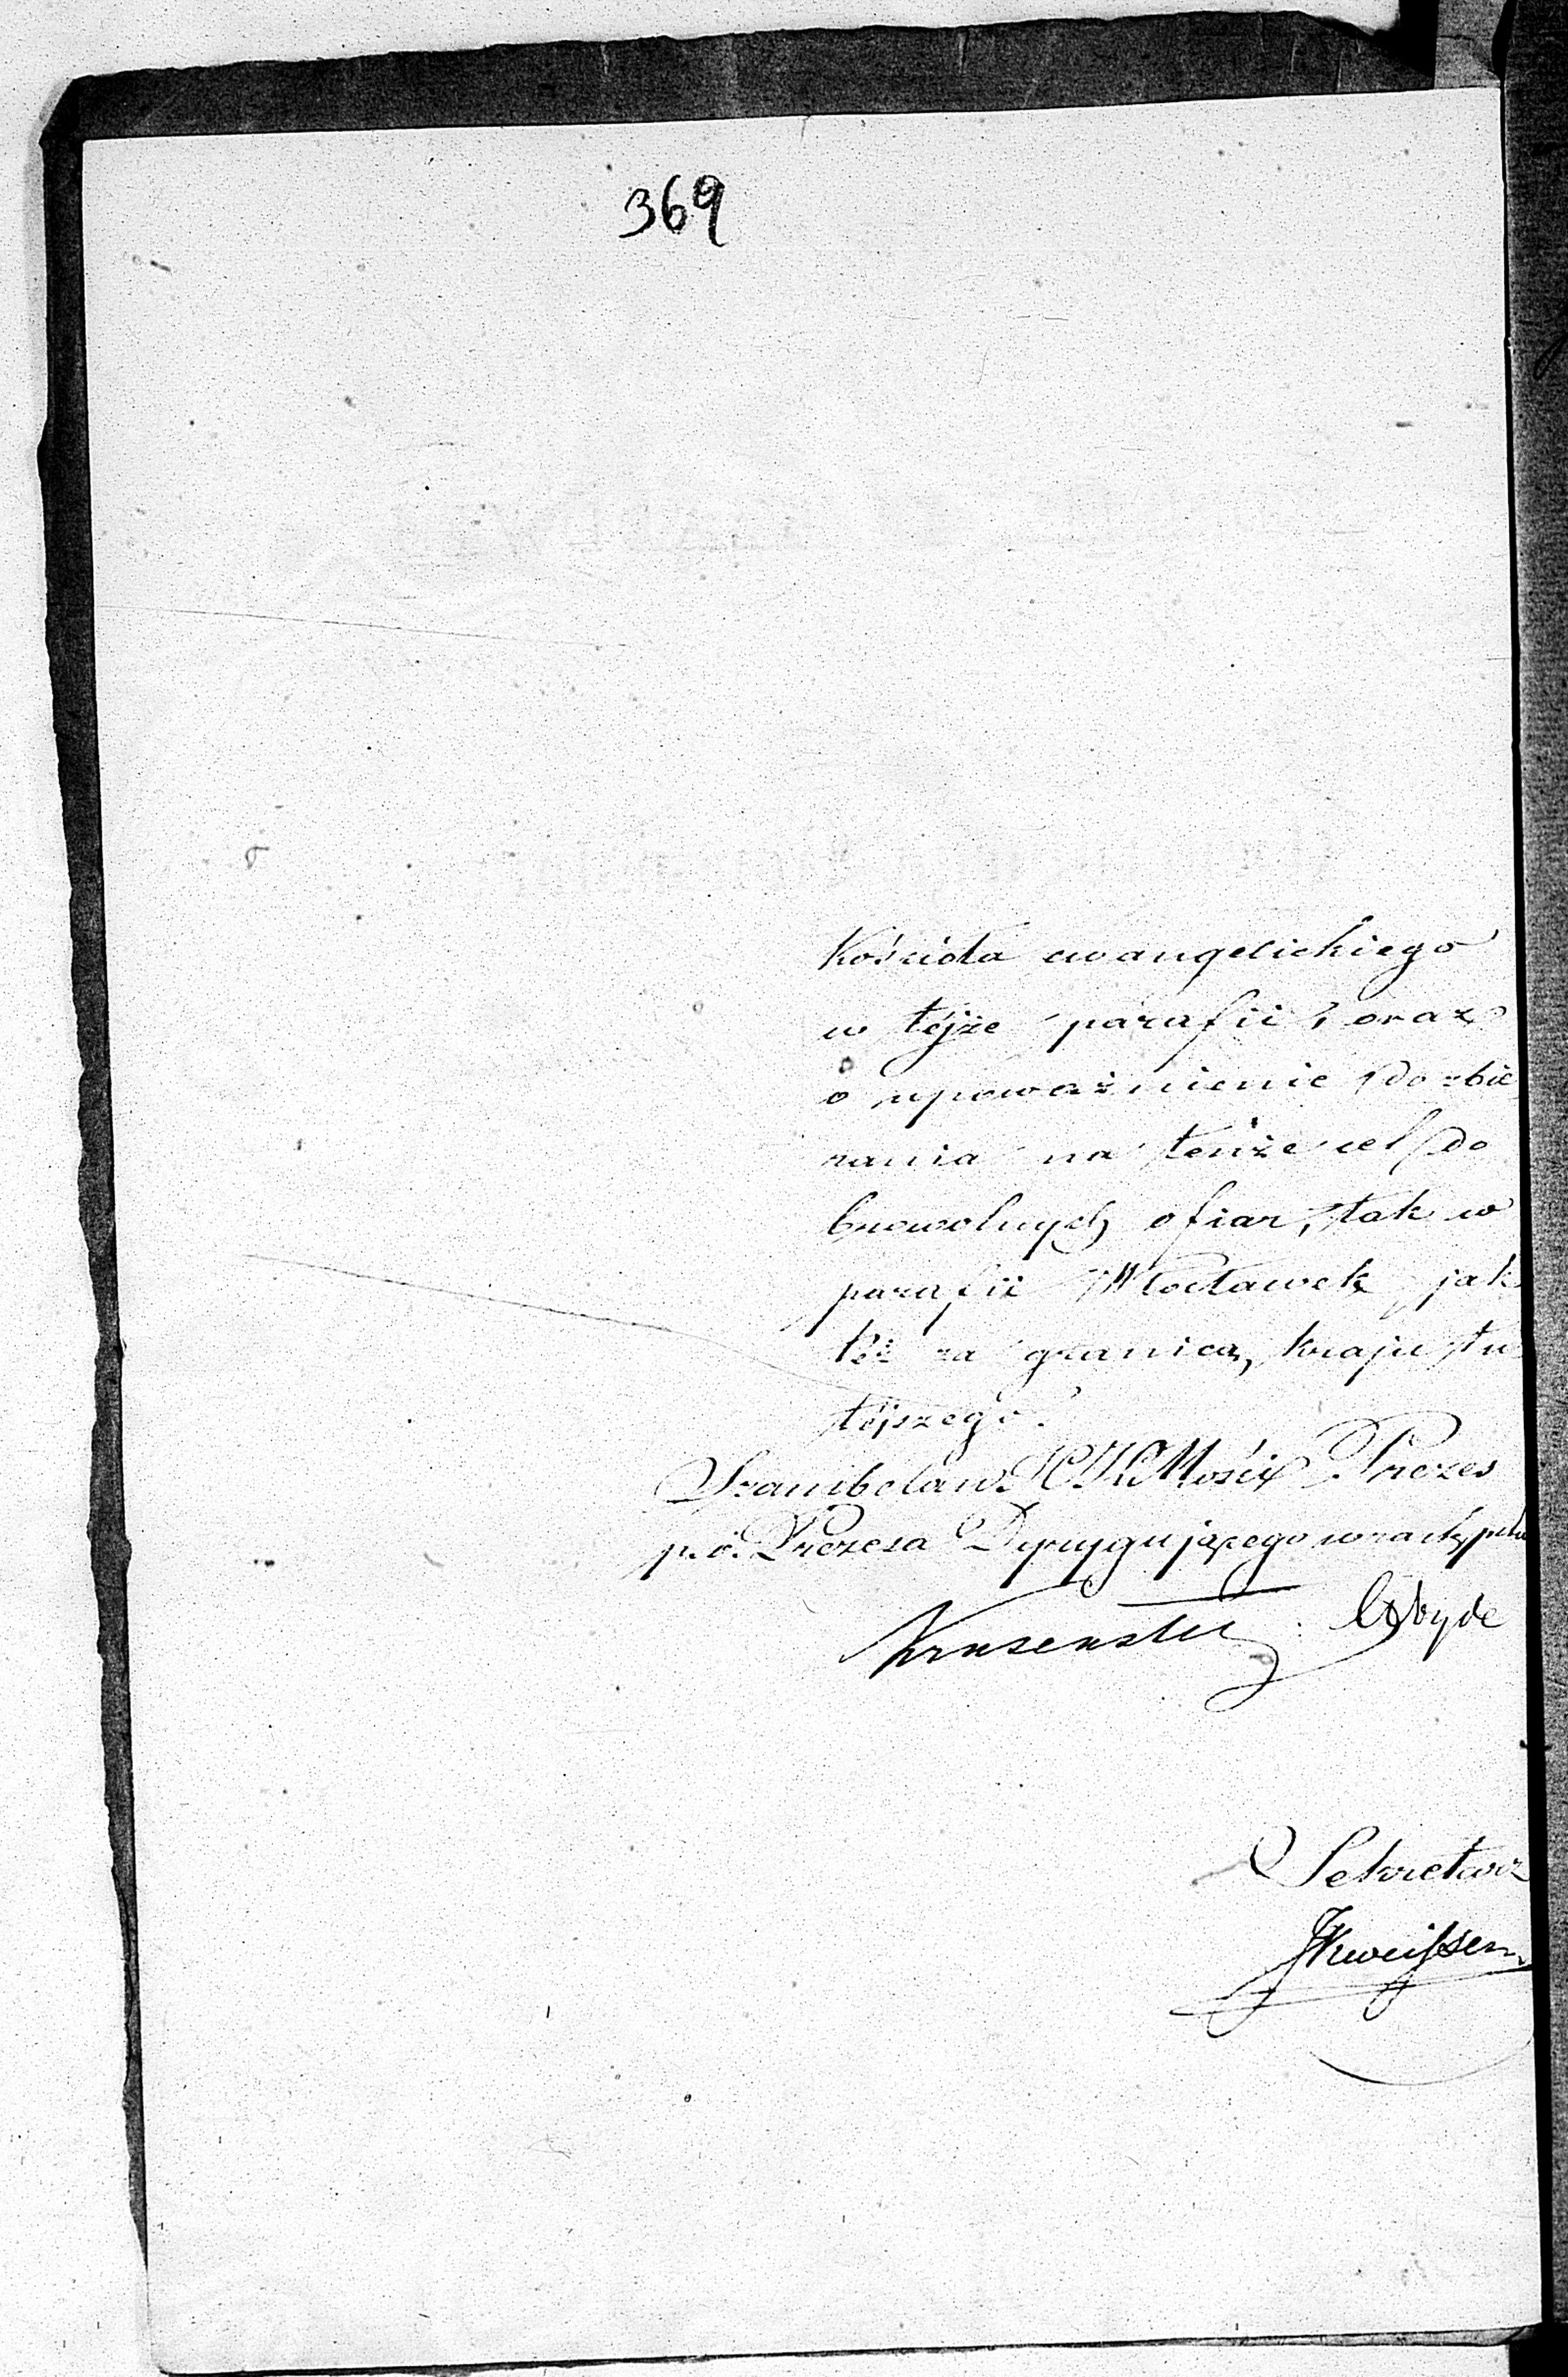 369
Kościoła ewangelickiego
w téjże parafii, oraz
o upoważnienie do zbie
rania na tenże cel do
browolnych ofiar, tak w
parafii Włocławek jak
też za granicą kraju tu
téjszego.
Szambelan J.C.K.Mości Prezes
p.o. Prezesa Dyrygującego w zastępstwie
Krusenstern
Sekretarz